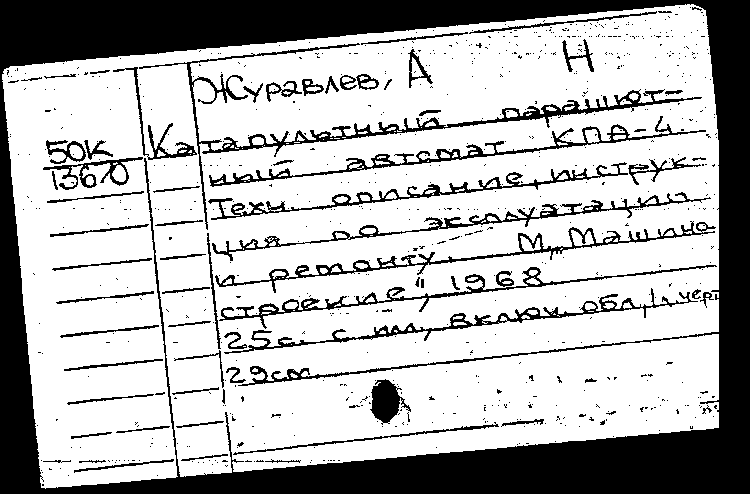 Журавлев, А Н
50К Катапультный парашют-
13670 ный автомат КПА-4.
Техн. описание, инструк-
ция по эксплуатации
и ремонту. М., „Машино
строение", 1968.
25с. с ил., включ. обл., 1л. черт
29см.